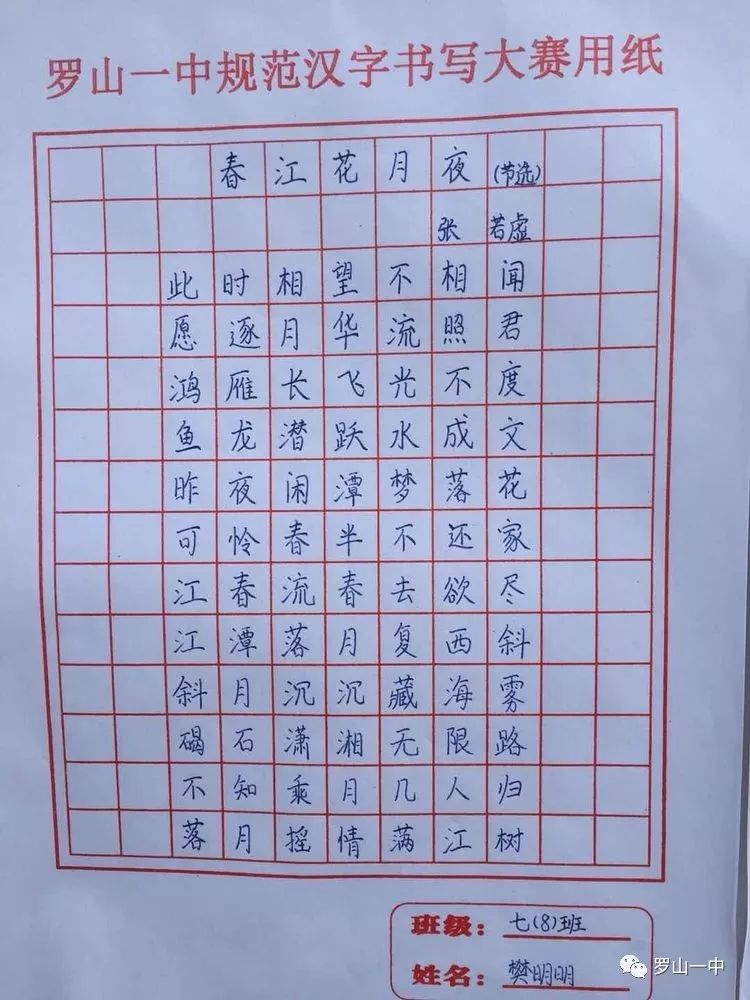 罗山一中规范汉字书写大赛用纸
春江花月夜(节选)
张若虚
此时相望不相闻
愿逐月华流照君
鸿雁长飞光不度
鱼龙潜跃水成文
昨夜闲潭梦落花
可怜春半不还家
江春流春去欲尽
江潭落月复西斜
斜月沉沉藏海雾
碣石潇湘无限路
不知乘月几人归
落月摇情满江树
班级：七(8)班
姓名：樊明明
罗山一中